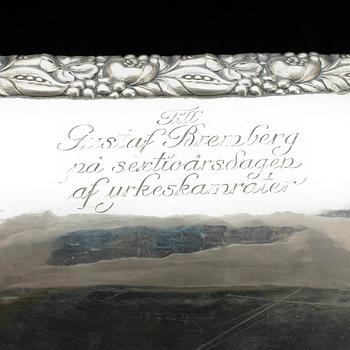 Till
Gustaf Bremberg
på sextioårsdagen
af yrkeskamrater